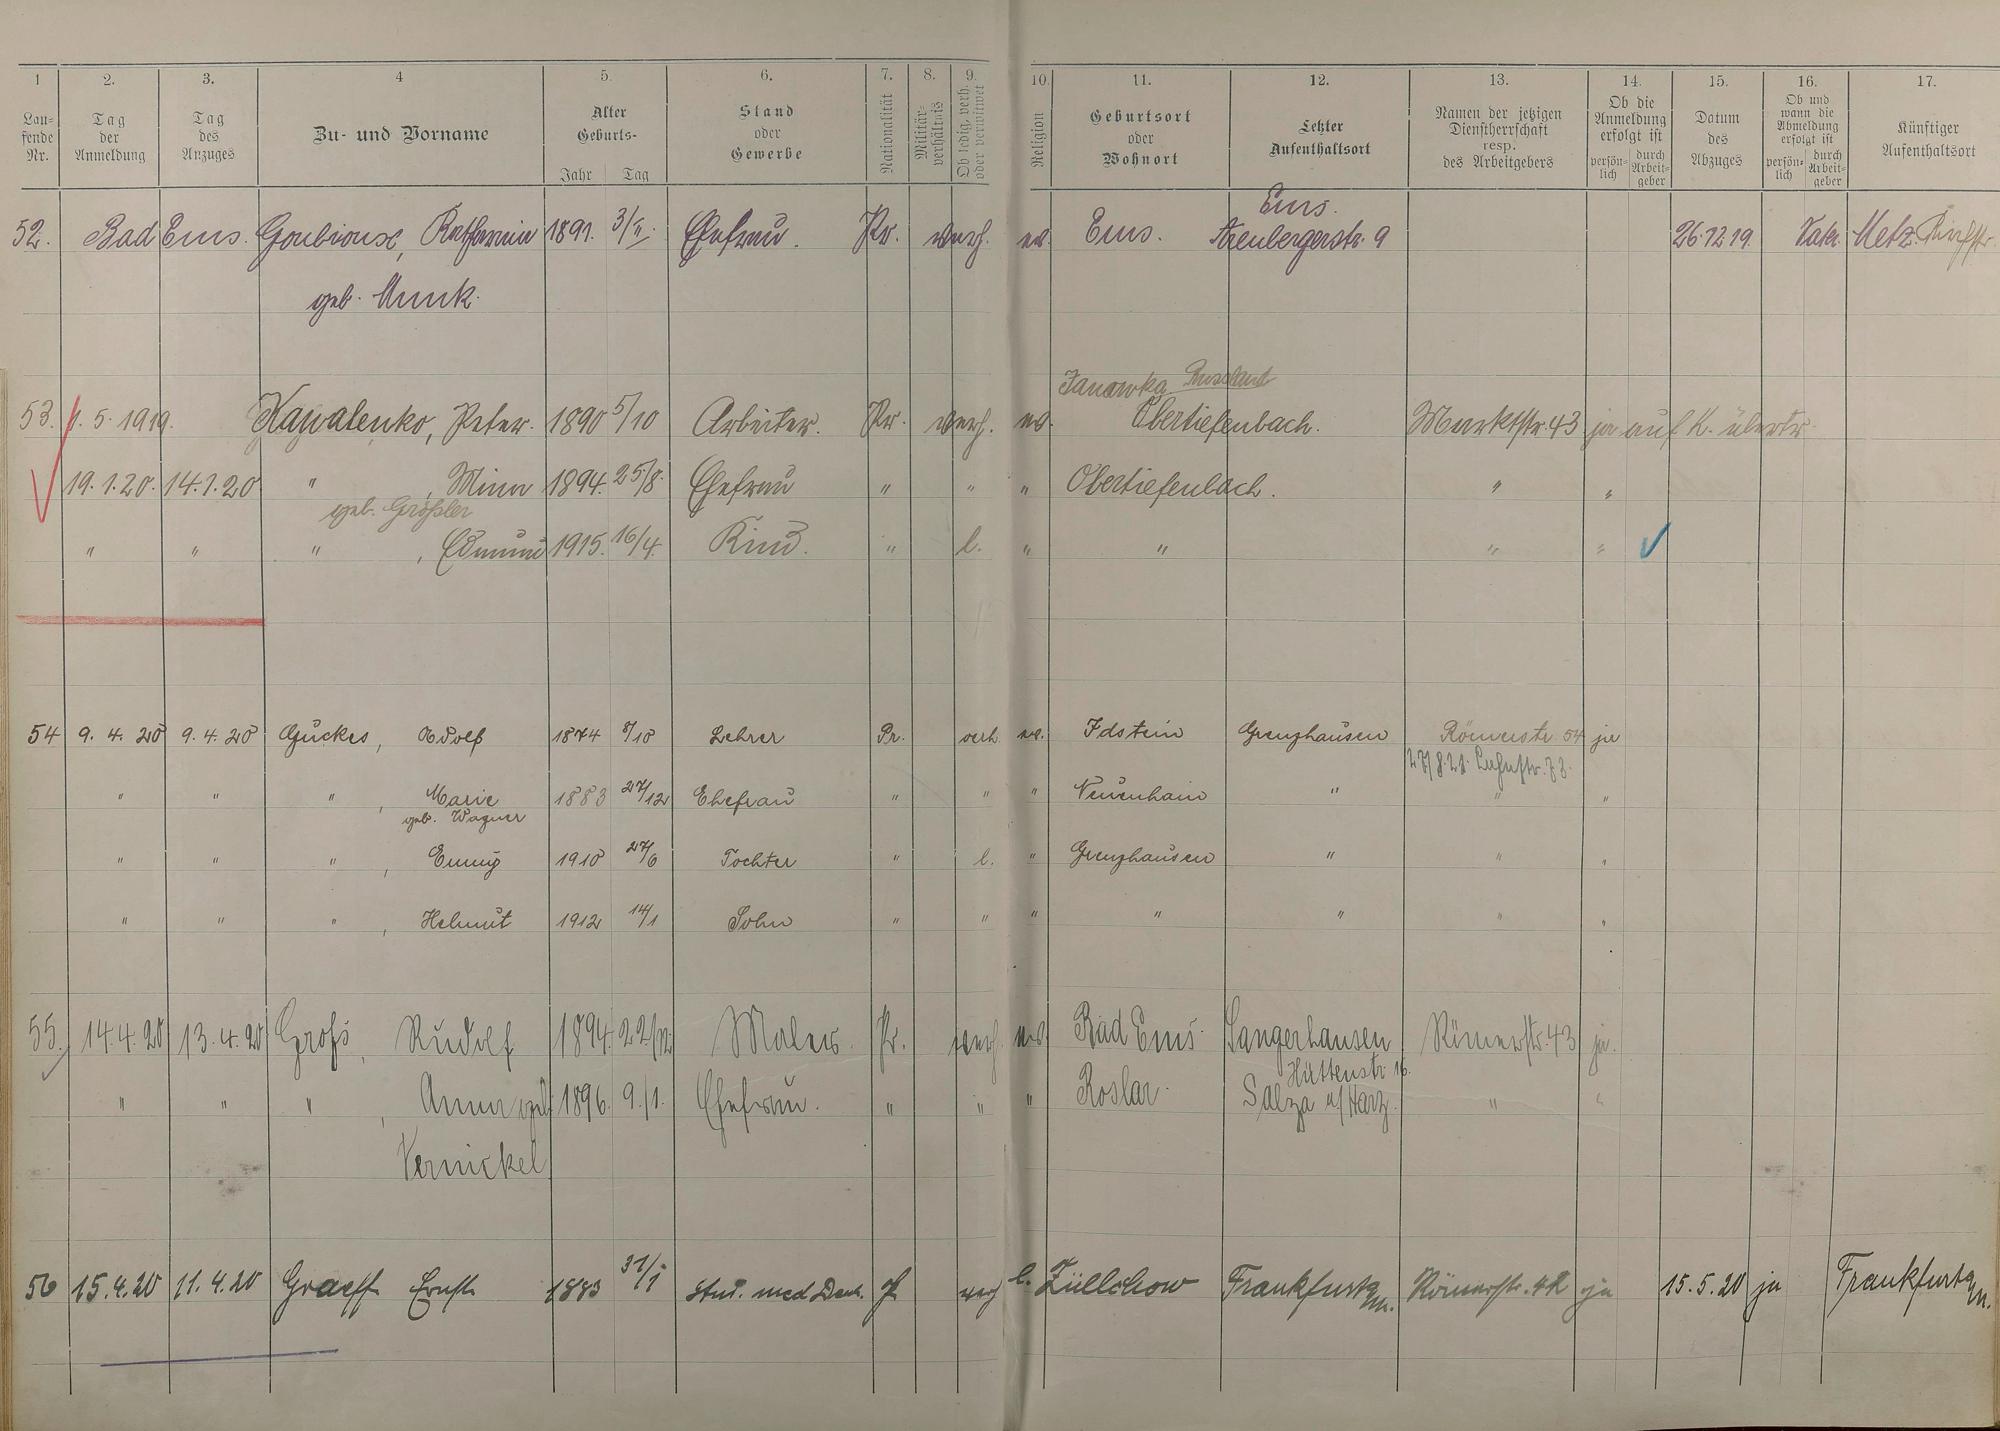 1 2. 3. 4 5. 6. 7. 8. 9. 10. 11. 12. 13. 14. 15. 16. 17.
Lau-
fende
Nr.
Tag
der
Anmeldung
Tag
des
Anzuges
Zu- und Vorname
Alter
Geburts-
Jahr Tag
Stand
oder
Gewerbe
Nationalität
Militär-
verhältnis
Ob ledig, verh.
oder verwitwet
Religion
Geburtsort
oder
Wohnort
Letzter
Aufenthaltsort
Namen der jetzigen
Dienstherrschaft
resp.
des Arbeitgebers
Ob die
Anmeldung
erfolgt ist
persön-
lich
durch
Arbeit-
geber
Datum
des
Abzuges
Ob und
wann die
Abmeldung
erfolgt ist
persön-
lich
durch
Arbeit-
geber
Künftiger
Aufenthaltsort
Ems.
52. Bad Ems. Katharina 1891. 3/II. Ehefrau. Pr. verh. ev. Ems. Arenbergerstr. 9 26.12.19. Vater. Metz.
geb. Munk.
Janowka Russland
53. 1.5.1919. Kawalenko, Peter. 1890 5/10 Arbeiter. Pr. verh. ev. Obertiefenbach. Marktstr. 43 ja auf K. übertr.
19.1.20. 14.1.20 " , Minna 1894. 25/8. Ehefrau " " " Obertiefenbach. " "
geb. Größler
" " " , Edmund 1915. 16/4. Kind. " l. " " " "
54 9.4.20 9.4.20 Guckes, Adolf 1874 8/10 Lehrer Pr. verh. ev. Idstein Grenzhausen Römerstr. 54 ja
27/8.21. Lahnstr. 73.
" " " , Marie 1883 27/12 Ehefrau " " " Neuenhain " " "
geb. Wagner
" " " , Emmy 1910 27/6 Tochter " l. " Grenzhausen " " "
" " " , Helmut 1912 14/1 Sohn " " " " " " "
55. 14.4.20 13.4.20 Groß, Rudolf 1894. 22/12. Maler. Pr. verh. ev. Bad Ems. Sangerhausen Römerstr. 43 ja.
Hüttenstr. 16.
" " " , Anna geb. 1896. 9./1. Ehefrau. " " " Roslar. Salza a/Harz. " "
Vernickel
56 15.4.20 11.4.20 Graeff Ernst 1883 31/1 stud. med Dent. P. verh l. Züllchow Frankfurt a/M. Römerstr. 42 ja 15.5.20 ja Frankfurt a/M.